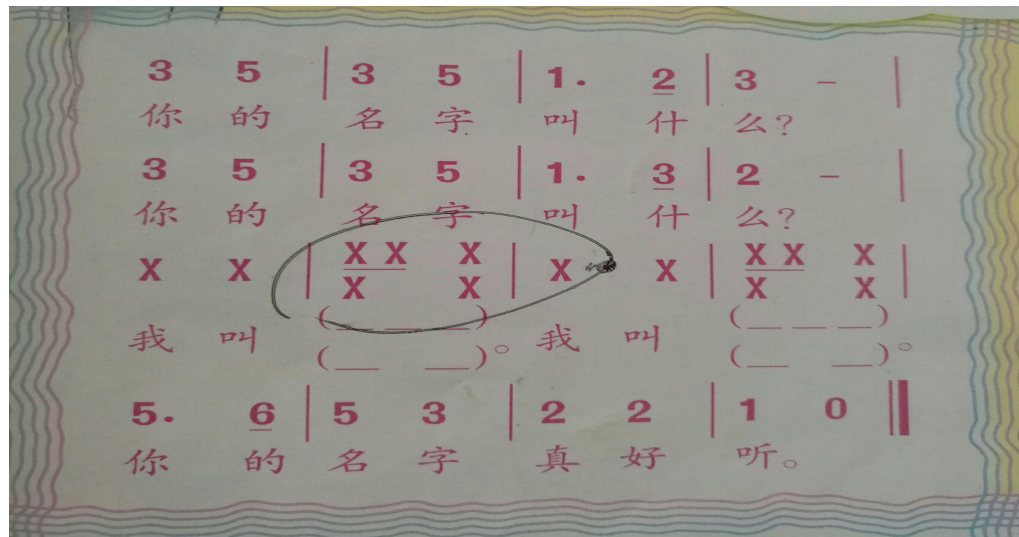 3 5 | 3 5 | 1. 2 | 3 - |
你 的 名 字 叫 什 么？
3 5 | 3 5 | 1. 3 | 2 - |
你 的 名 字 叫 什 么？
X X | X X X | X X | X X X |
X X X X
我 叫 (_ _ _) 我 叫 (_ _ _)
(_ _)。 (_ _)。
5. 6 | 5 3 | 2 2 | 1 0 ‖
你 的 名 字 真 好 听。